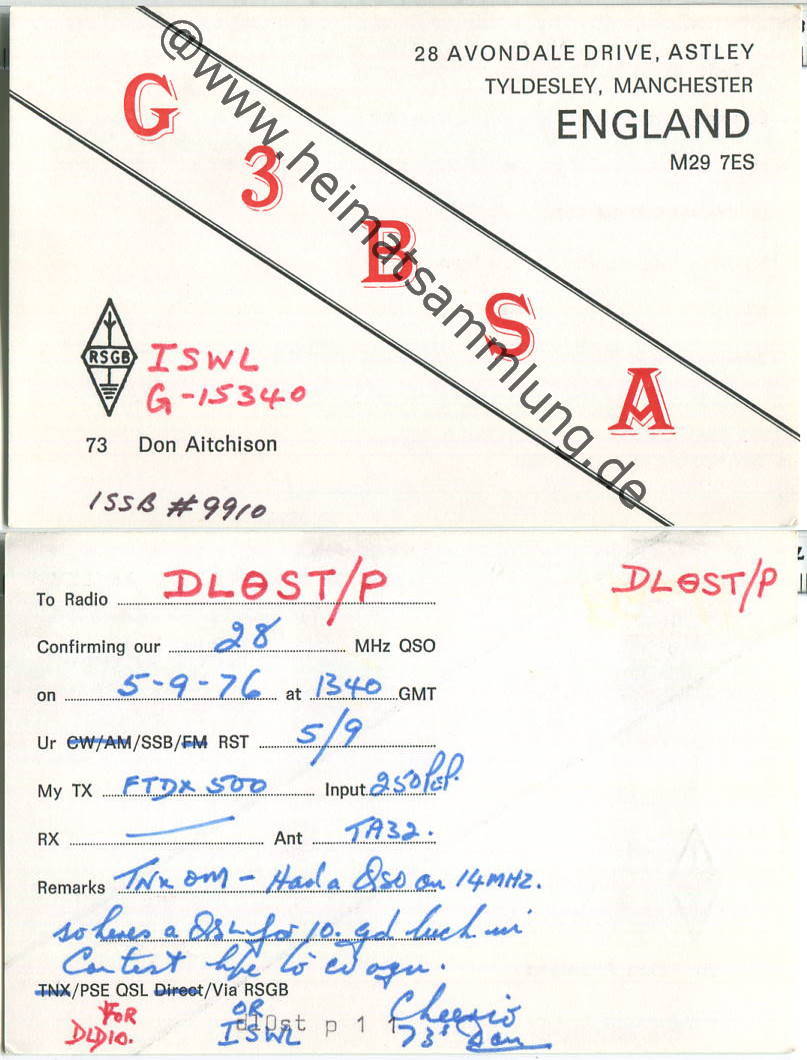 28 AVONDALE DRIVE, ASTLEY
TYLDESLEY, MANCHESTER
ENGLAND
M29 7ES
G3BSA
@www.heimatsammlung.de
RSGB
ISWL
G-15340
73 Don Aitchison
ISSB #9910
DLØST/P
To Radio DLØST/P
Confirming our 28 MHz QSO
on 5-9-76 at 1340 GMT
Ur CW/AM/SSB/FM RST 5/9
My TX FTDX 500 Input 250 PEP.
RX Ant TA32.
Remarks TNx OM - Had a QSO on 14MHZ.
so heres a QSL for 10. gd luck in
Contest hpe to cu agn.
TNX/PSE QSL Direct/Via RSGB
OR
ISWL
FOR
DLD10.
dl0st p 1 1
Cheerio
73s Don